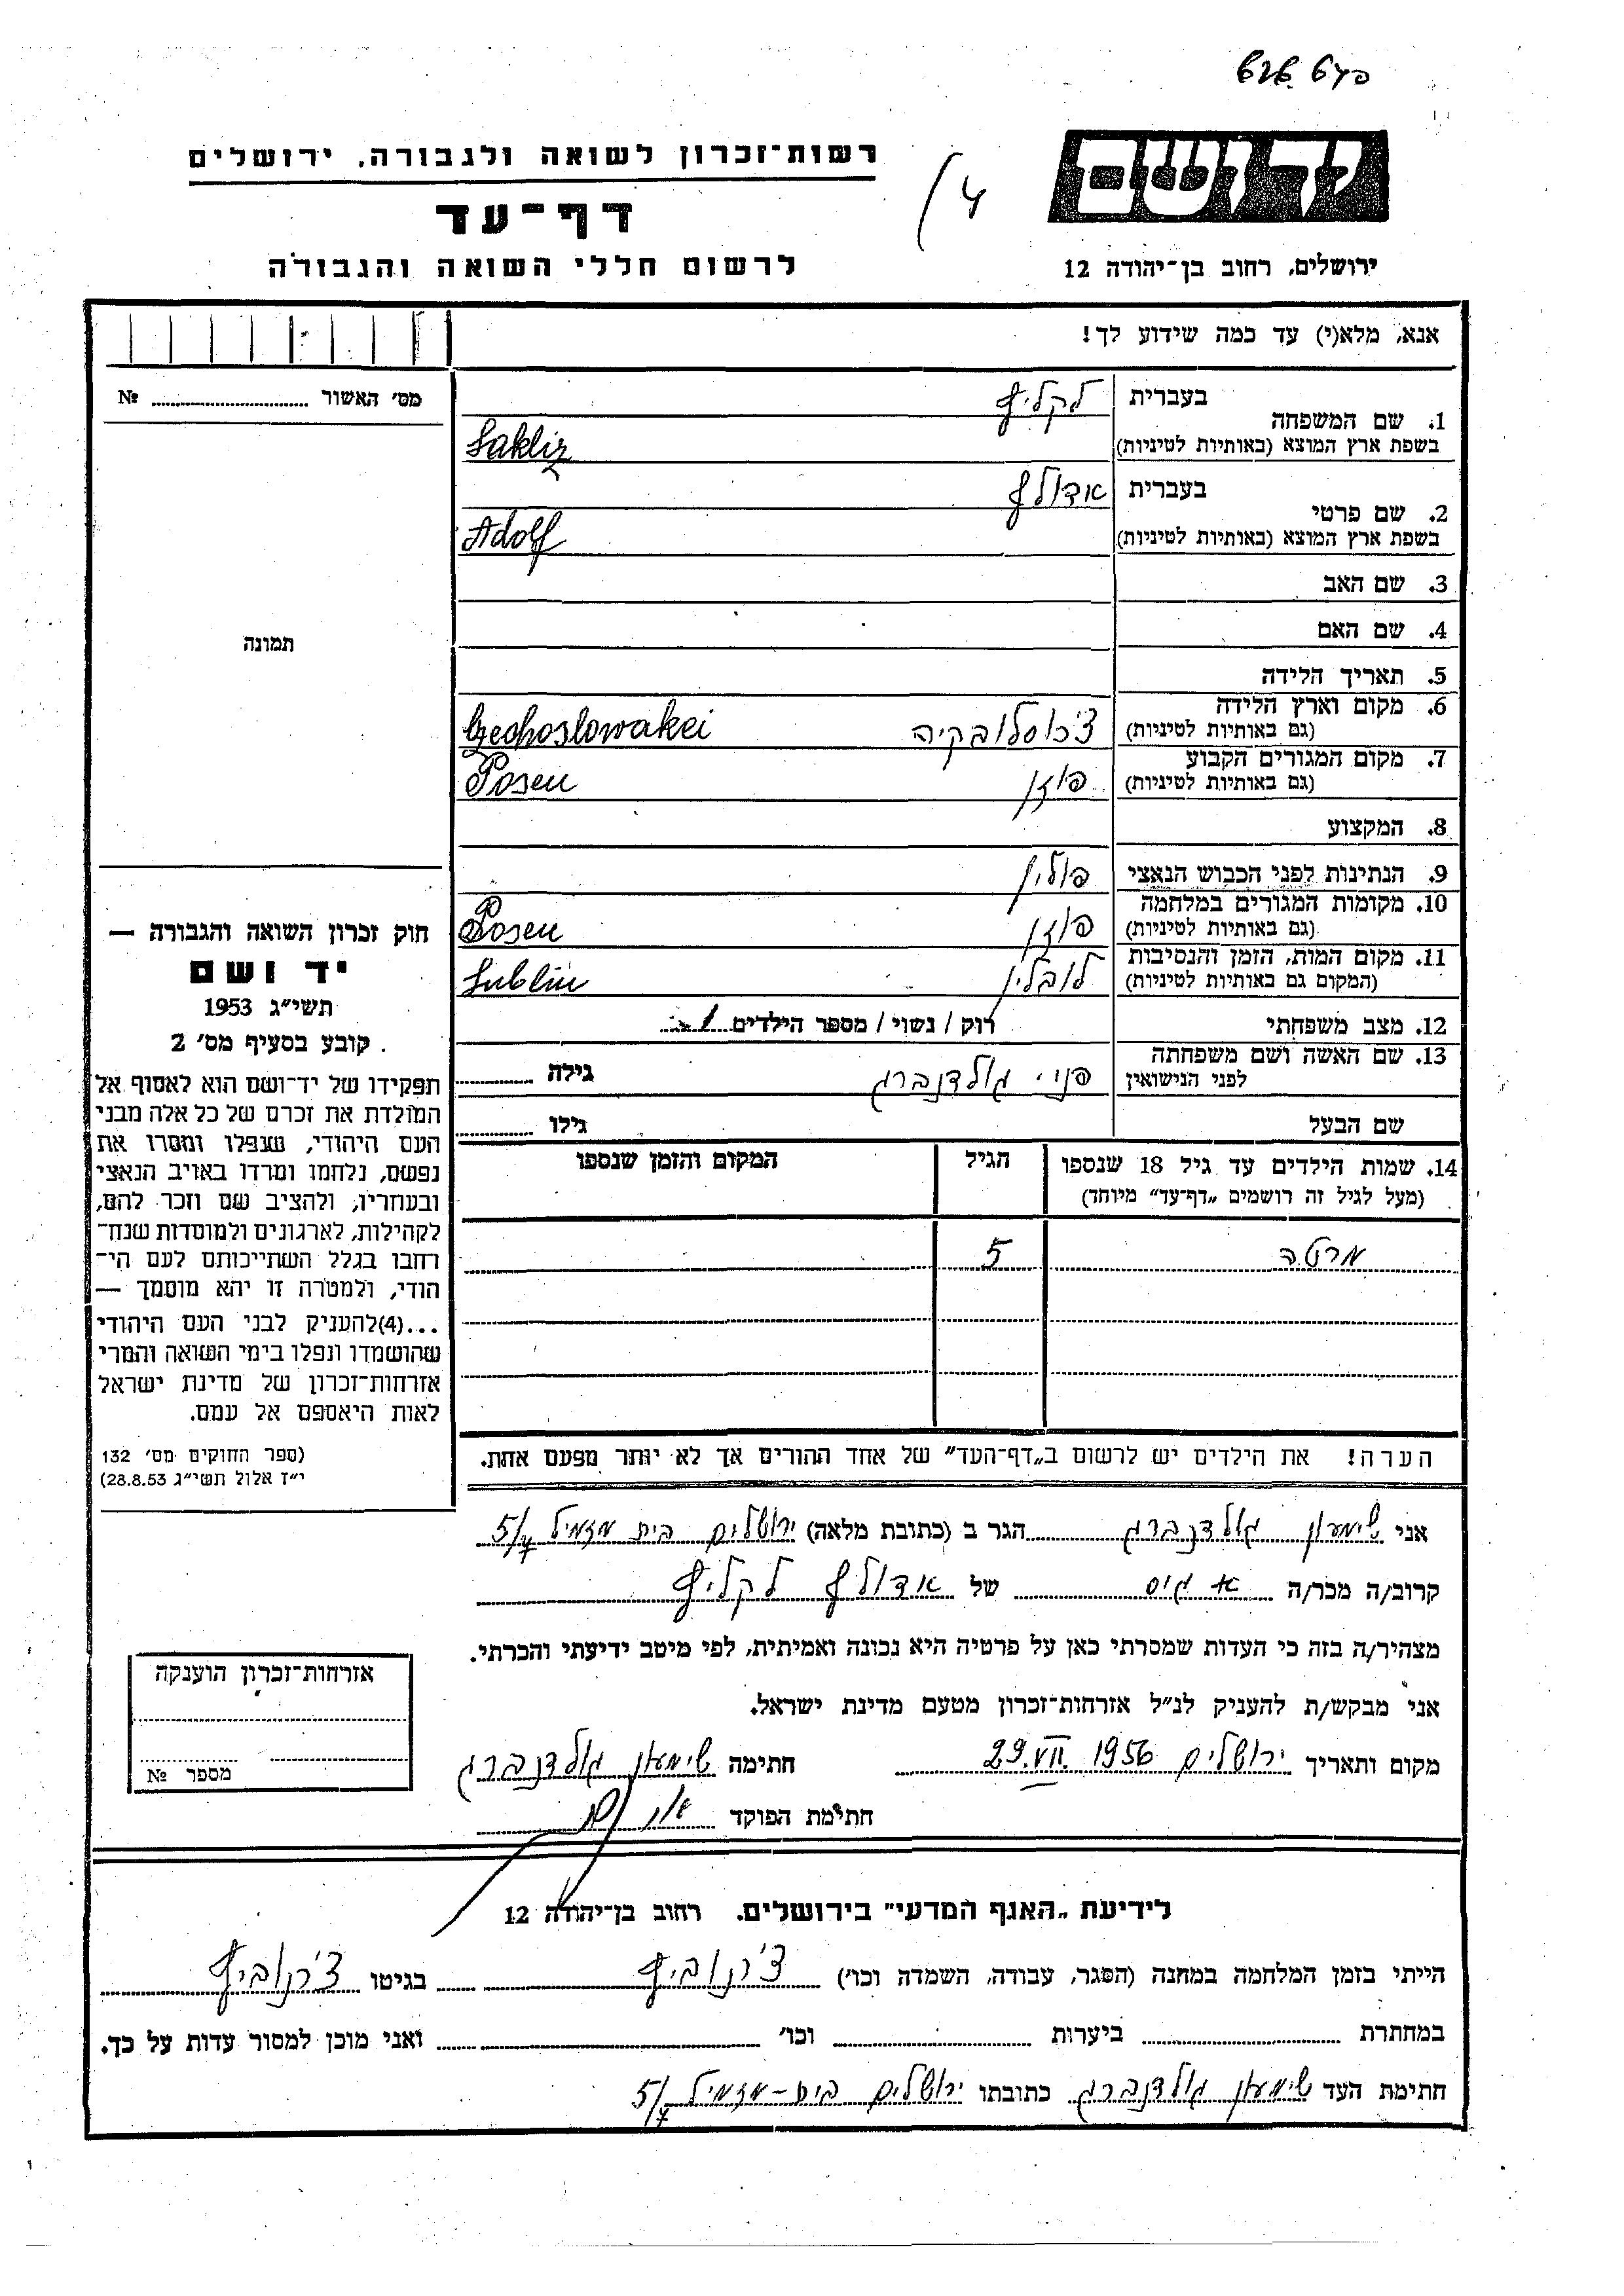 יד ושם
ירושלים, רחוב בן־יהודה 12
רשות־זכרון לשואה ולגבורה, ירושלים
דף־עד
לרשום חללי השואה והגבורה
אנא, מלא(י) עד כמה שידוע לך!
1. שם המשפחה בעברית לקליץ
בשפת ארץ המוצא (באותיות לטיניות) Lakliz
2. שם פרטי בעברית אדולף
בשפת ארץ המוצא (באותיות לטיניות) Adolf
3. שם האב
4. שם האם
5. תאריך הלידה
6. מקום וארץ הלידה
(גם באותיות לטיניות) צ'כוסלובקיה Czechoslowakei
7. מקום המגורים הקבוע
(גם באותיות לטיניות) פוזן Posen
8. המקצוע
9. הנתינות לפני הכבוש הנאצי פולין
10. מקומות המגורים במלחמה
(גם באותיות לטיניות) פוזן Posen
11. מקום המות, הזמן והנסיבות
(המקום גם באותיות לטיניות) לובלין Lublin
12. מצב משפחתי רוק / נשוי / מספר הילדים 1
13. שם האשה ושם משפחתה
לפני הנישואין פני גולדנברג גילה
שם הבעל גילו
14. שמות הילדים עד גיל 18 שנספו הגיל המקום והזמן שנספו
(מעל לגיל זה רושמים „דף־עד” מיוחד)
מרטה 5
הערה! את הילדים יש לרשום ב„דף־העד” של אחד ההורים אך לא יותר מפעם אחת.
מס׳ האשור №
תמונה
חוק זכרון השואה והגבורה —
יד ושם
תשי״ג 1953
קובע בסעיף מס׳ 2
תפקידו של יד־ושם הוא לאסוף אל
המולדת את זכרם של כל אלה מבני
העם היהודי, שנפלו ומסרו את
נפשם, נלחמו ומרדו באויב הנאצי
ובעוזריו, ולהציב שם וזכר להם,
לקהילות, לארגונים ולמוסדות שנח־
רחבו בגלל השתייכותם לעם הי־
הודי, ולמטרה זו יהא מוסמך —
...(4)להעניק לבני העם היהודי
שהושמדו ונפלו בימי השואה והמרי
אזרחות־זכרון של מדינת ישראל
לאות היאספם אל עמם.
(ספר החוקים מס׳ 132
י״ז אלול תשי״ג 28.8.53)
אני שימעון גולדנברג הגר ב (כתובת מלאה) ירושלים בית מזמיל 5/7
קרוב/ה מכר/ה גיס של אדולף לקליץ
מצהיר/ה בזה כי העדות שמסרתי כאן על פרטיה היא נכונה ואמיתית, לפי מיטב ידיעתי והכרתי.
אני מבקש/ת להעניק לנ״ל אזרחות־זכרון מטעם מדינת ישראל.
מקום ותאריך ירושלים 29.VII.1956 חתימה שימעון גולדנברג
חתימת הפוקד
אזרחות־זכרון הוענקה
מספר №
לידיעת „האגף המדעי” בירושלים. רחוב בן־יהודה 12
הייתי בזמן המלחמה במחנה (הסגר, עבודה, השמדה וכו׳) צ'רנוביץ בגיטו צ'רנוביץ
במחתרת ביערות וכו׳ ואני מוכן למסור עדות על כך.
חתימת העד שימעון גולדנברג כתובתו ירושלים בית־מזמיל 5/7